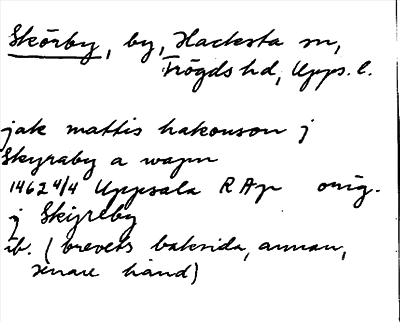 Skörby, by, Hacksta sn,
Trögds hd, Upps. l.
jak mattis hakonson j
Skyraby a wapn
1462 4/4 Uppsala RAp orig.
j Skijreby
ib. (brevets baksida, annan,
senare hand)